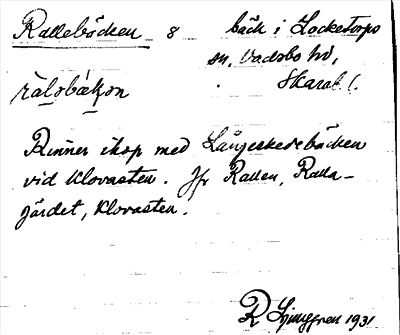 Rallebäcken 8 bäck i Locketorps
sn, Vadsbo hd,
Skarab. l.
ràlobäkon
Rinner ihop med Långeskedebäcken
vid Klovasten. Jfr Rallen, Ralla-
gärdet, Klovasten.
R Ljunggren 1931